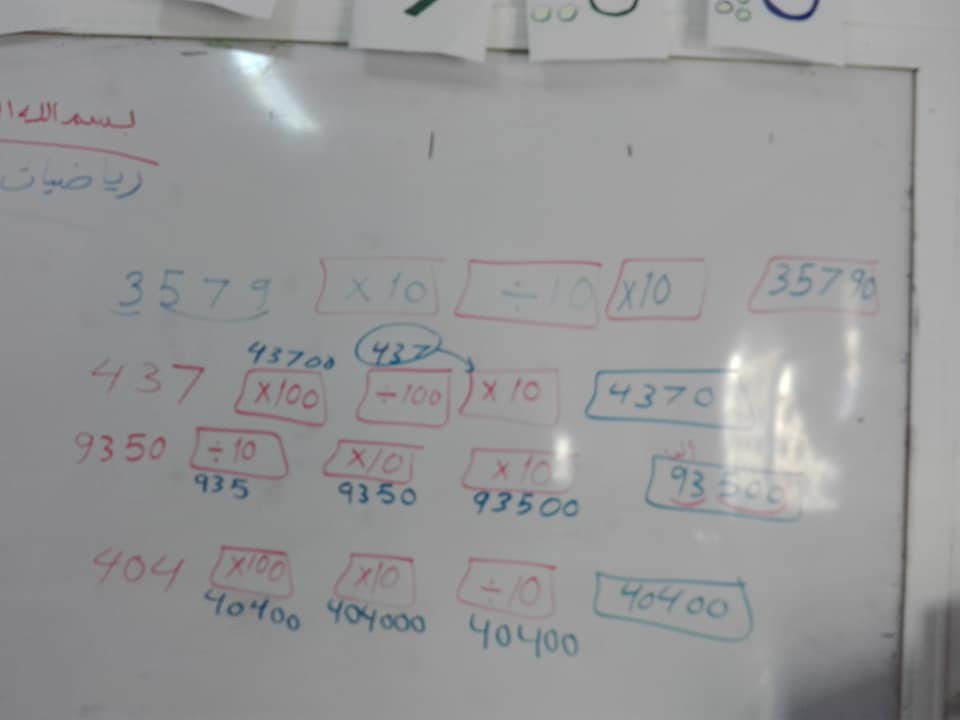 بسم الله ا
رياضيات
3579 ×10 ÷10 ×10 35790
43700 437
437 ×100 ÷100 ×10 4370
9350 ÷10 ×10 ×10 93500
935 9350 93500
404 ×100 ×10 ÷10 40400
40400 404000 40400